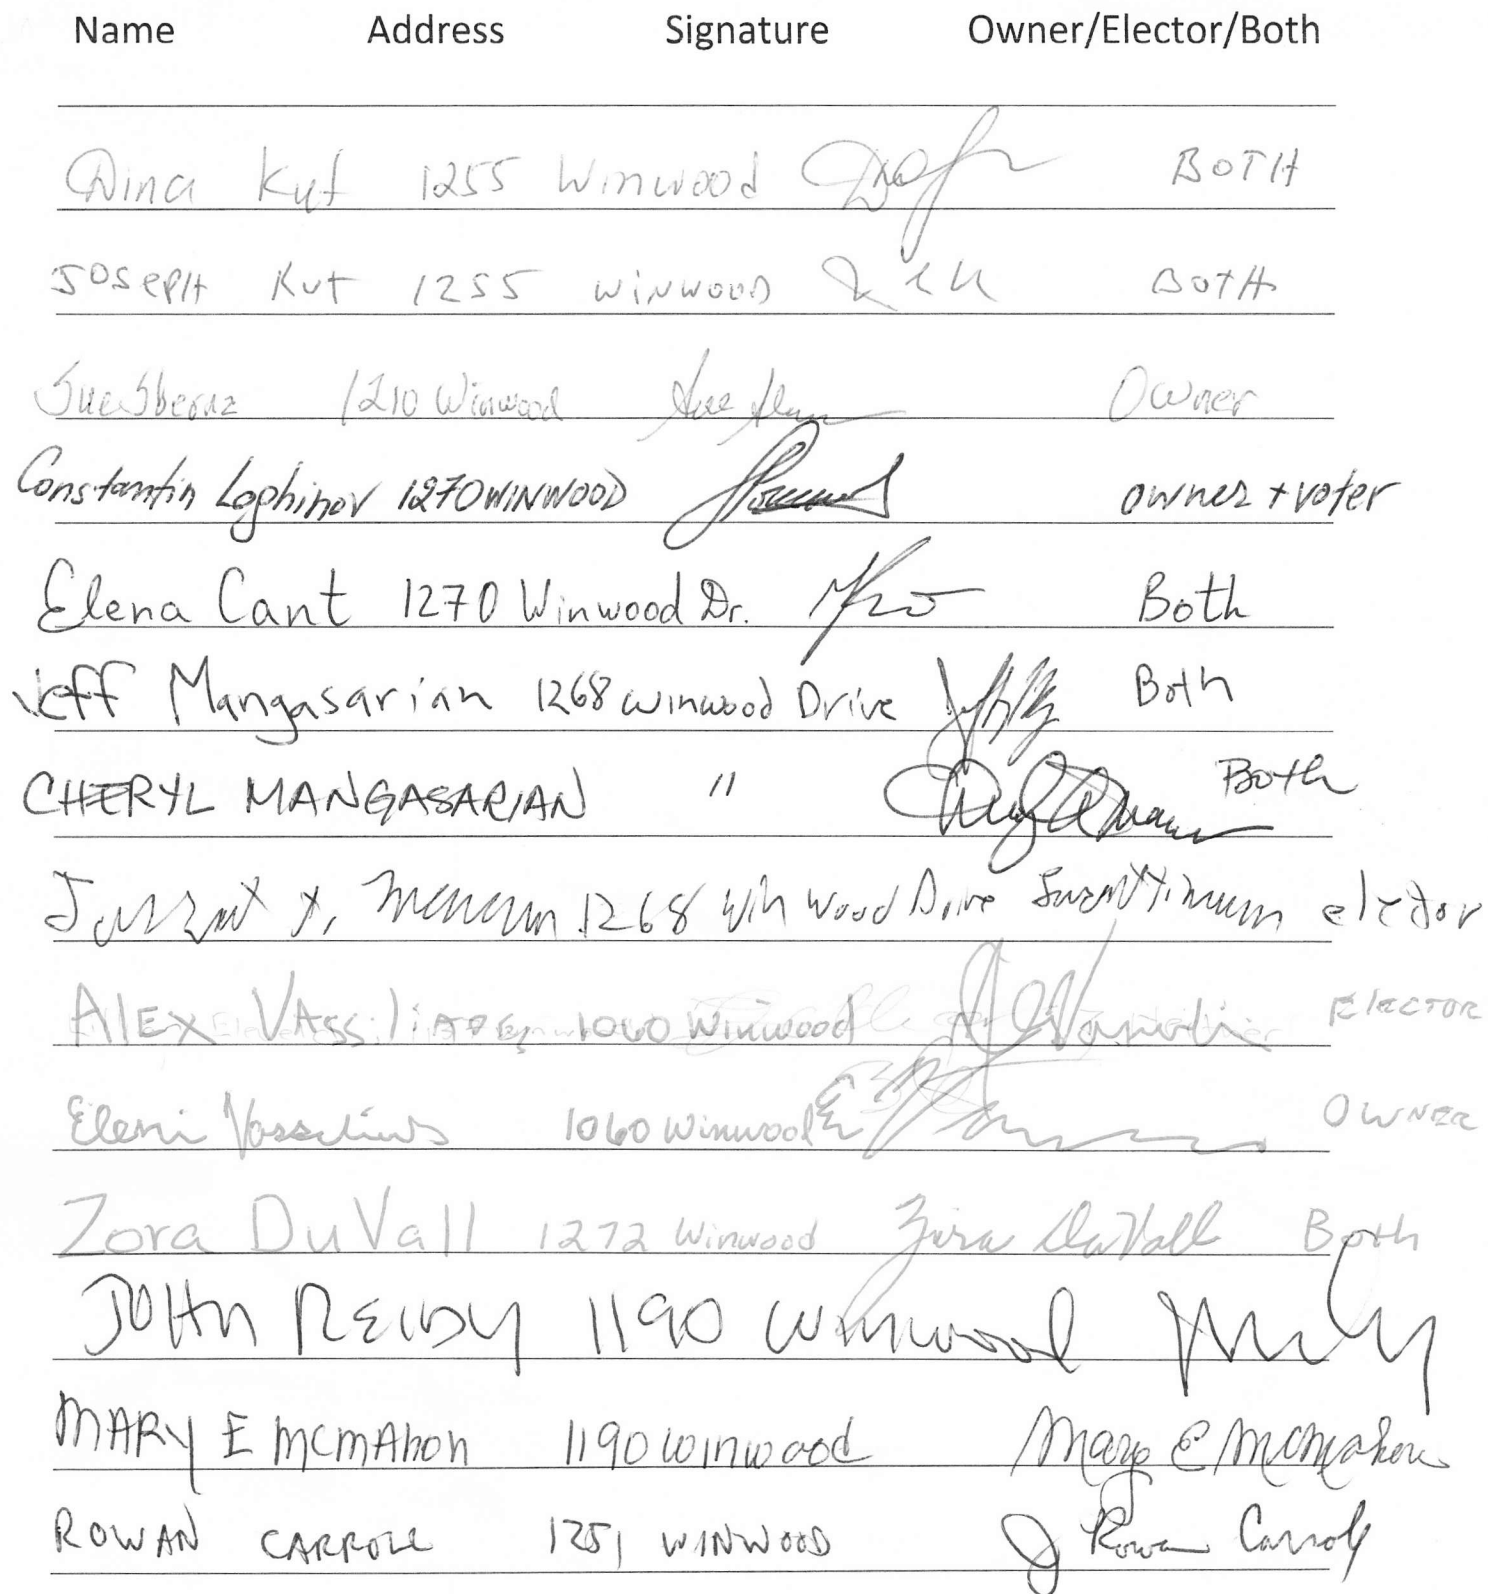 Name Address Signature Owner/Elector/Both
Dina Kut 1255 Winwood BOTH
JOSEPH Kut 1255 WINWOOD BOTH
Sue 1210 Winwood Owner
Constantin Lophinov 1270 WINWOOD owner + voter
Elena Cant 1270 Winwood Dr. Both
Jeff Mangasarian 1268 winwood Drive Both
CHERYL MANGASARIAN " Both
1268 Win Wood Drive elector
ALEX 1060 Winwood ELECTOR
Eleni 1060 Winwood OWNER
Zora DuVall 1272 Winwood Zora DuVall Both
JOHN 1190 Winwood
MARY E MCMAHON 1190 Winwood Mary E McMahon
ROWAN CARROLL 1251 WINWOOD J Rowan Carroll